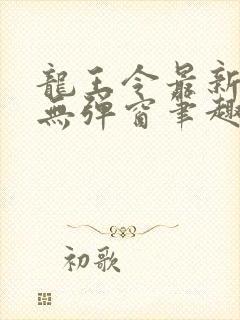 龍王令最新
無彈窗筆趣
初歌